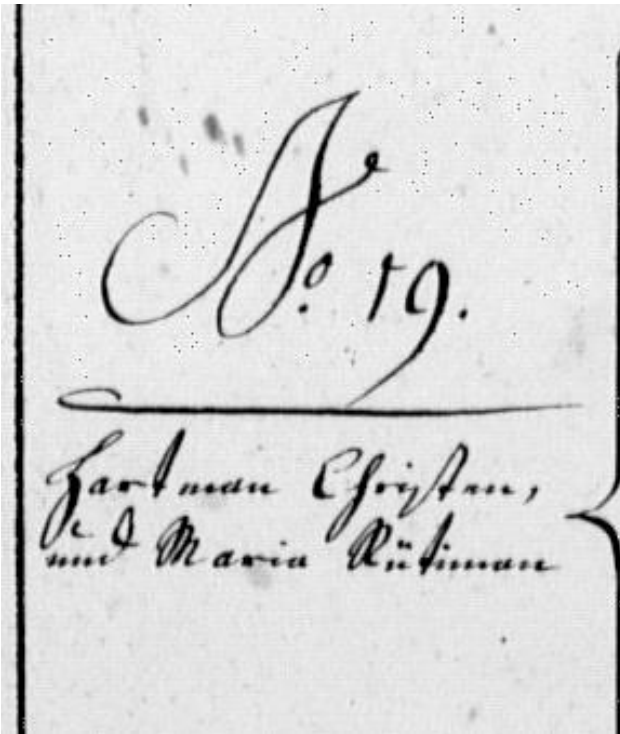 No. 19.
Hartman Christen,
und Maria Rütiman